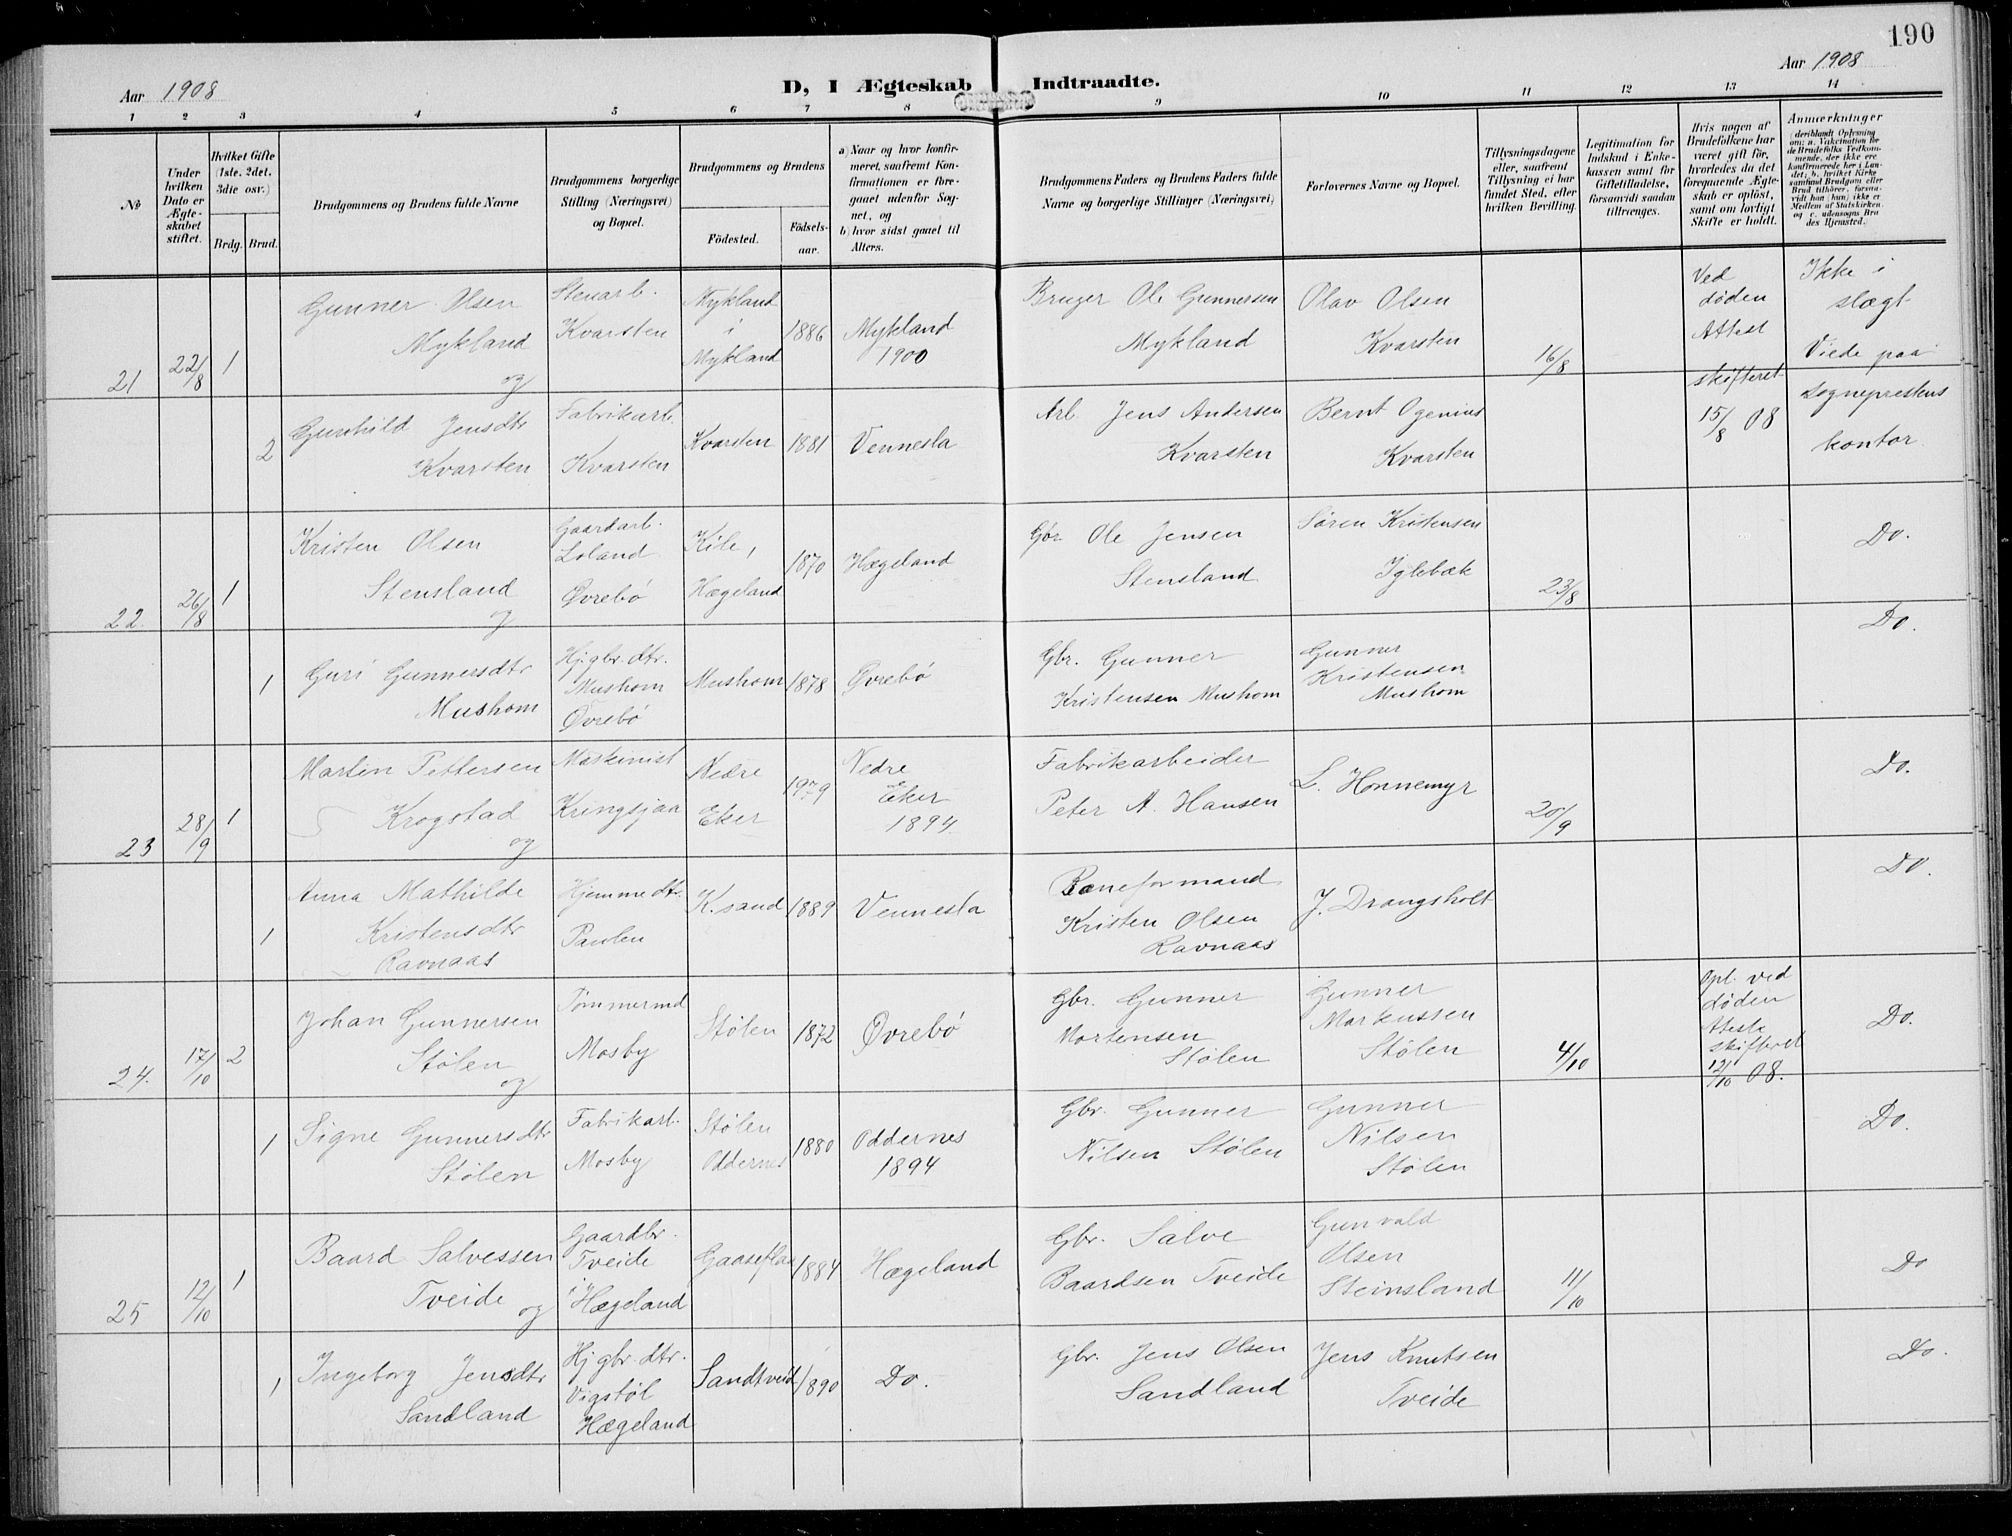 190
Aar 1908
D, I Ægteskab Indtraadte.
Aar 1908
1 2 3 4 5 6 7 8 9 10 11 12 13 14
№
Under hvilken Dato er Ægteskabet stiftet.
Hvilket Gifte (1ste, 2det, 3die osv.)
Brdg. Brud.
Brudgommens og Brudens fulde Navne
Brudgommens borgerlige Stilling (Næringsvei) og Bopæl.
Brudgommens og Brudens
Födested.
Födselsaar.
a) Naar og hvor konfirmeret, saafremt Konfirmationen er foregaaet udenfor Sognet, og
b) hvor sidst gaaet til Alters.
Brudgommens Faders og Brudens Faders fulde Navne og borgerlige Stillinger (Næringsvei)
Forlovernes Navne og Bopæl.
Tillysningsdagene eller, saafremt Tillysning ei har fundet Sted, efter hvilken Bevilling.
Legitimation for Indskud i Enkekassen samt for Giftetilladelse, forsaavidt saadan tiltrænges.
Hvis nogen af Brudefolkene har været gift för, hvorledes da det foregaaende Ægteskab er oplöst, samt om lovligt Skifte er holdt.
Anmærkninger
21 22/8 1
Gunner Olsen
Mykland
og
Stenarb.
Kvarsten
Mykland
i
Mykland
1886
Mykland
1900
Bruger Ole Gunnersen
Mykland
Olav Olsen
Kvarsten
16/8
Ved
døden
Attest
skifteret
15/8 08
Ikke i
slægt
Viede paa
Sogneprestens
kontor
2
Gunhild Jensdtr
Kvarsten
Fabrikarb.
Kvarsten
Kvarsten
1881
Vennesla
Arb Jens Andersen
Kvarsten
Bernt Ogenius
Kvarsten
22. 26/8 1
Kristen Olsen
Stensland
og
Gaardarb.
Loland
Øvrebö
Kile,
Hægeland
1870
Hægeland
Gbr Ole Jensen
Stensland
Søren Kristensen
Iglebæk
23/8
Do.
1
Guri Gunnersdtr
Mushom
Hj.gbr.dtr.
Mushom
Øvrebö
Mushom
1878
Øvrebö
Gbr. Gunner
Kristensen Mushom
Gunner
Kristensen
Mushom
Do.
23 28/9 1
Martin Pettersen
Krogstad
og
Maskinist
Kringsjaa
Nedre
Eker
1979
Nedre
Eker
1894
Fabrikarbeider
Peter A. Hansen
L. Honnemyr
20/9
Do.
1
Anna Mathilde
Kristensdtr
Ravnaas
Hjemmedtr.
Paulen
K.sand
1889
Vennesla
Baneformand
Kristen Olsen
Ravnaas
J. Drangsholt
Do.
24. 17/10 2
Johan Gunnersen
Stølen
og
Tömmermd
Mosby
Stølen
1872
Øvrebö
Gbr. Gunner
Mortensen
Stølen
Gunner
Markussen
Stølen
4/10
Opl. ved
døden
Attest
skifteret
12/10 08.
Do.
1
Signe Gunnersdtr
Stølen
Fabrikarb.
Mosby
Stølen
Oddernes
1880
Oddernes
1894
Gbr. Gunner
Nilsen Stølen
Gunner
Nilsen
Stølen
Do.
25 12/10 1
Baard Salvessen
Tveide
og
Gaardbr.
Tveide
i Hægeland
Gaaseflaa
1884
Hægeland
Gbr. Salve
Baardsen Tveide
Gunvald
Olsen
Steinsland
11/10
Do
1
Ingeborg Jensdtr
Sandland
Hj gbr.dtr.
Vigstöl
Hægeland
Sandtveid
1890
Do.
Gbr. Jens Olsen
Sandland
Jens Knutsen
Tveide
Do.